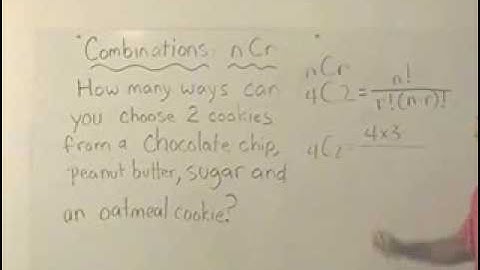 "Combinations: nCr "
How many ways can
you choose 2 cookies
from a chocolate chip,
peanut butter, sugar and
an oatmeal cookie?
nCr
4C2 = n!
r!(n-r)!
4C2 = 4x3